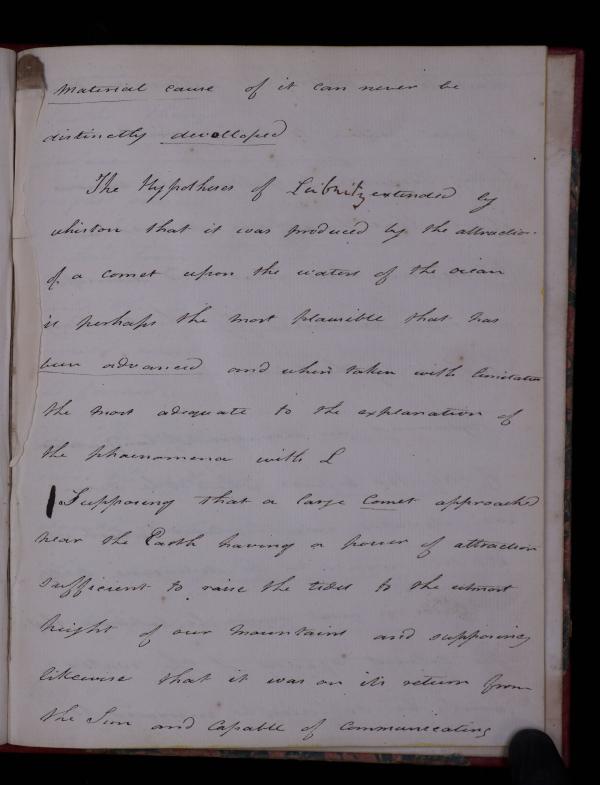 material cause of it can never be
distinctly devolloped
The Hypotheses of Leibnitz extended by
whiston that it was produced by the attraction
of a comet upon the waters of the ocean
is perhaps the most plausible that has
been advanced and when taken with limitation
the most adequate to the explanation of
the phaenomena with L
Supposing that a large Comet approached
near the Earth having a power of attraction
sufficient to raise the tides to the utmost
height of our mountains and supposing
likewise that it was on its return from
the Sun and capable of communicating